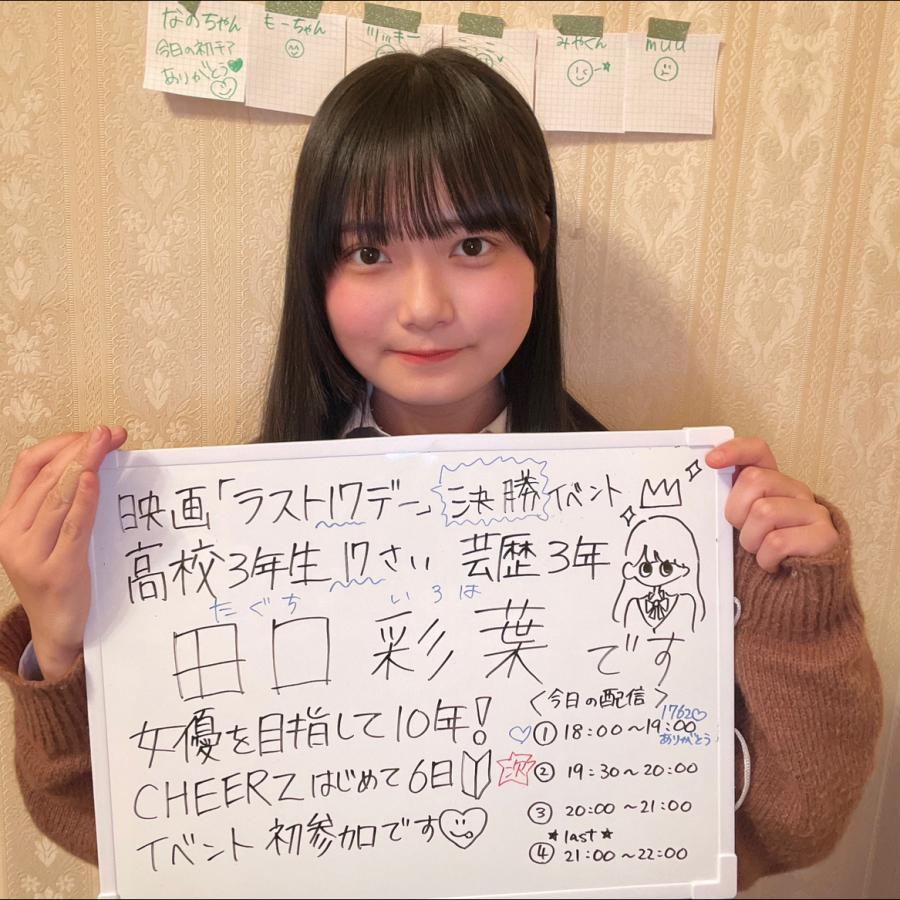 なのちゃん
今日の初チア
ありがとう
もーちゃん
みやくん
muu
映画「ラスト17デー」決勝イベント
高校3年生 17さい 芸歴3年
たぐち いろは
田口 彩葉 です
女優を目指して10年!
CHEERZはじめて6日
イベント 初参加です
〈今日の配信〉
1762
① 18:00〜19:00
ありがとう
次
② 19:30〜20:00
③ 20:00〜21:00
★last★
④ 21:00〜22:00